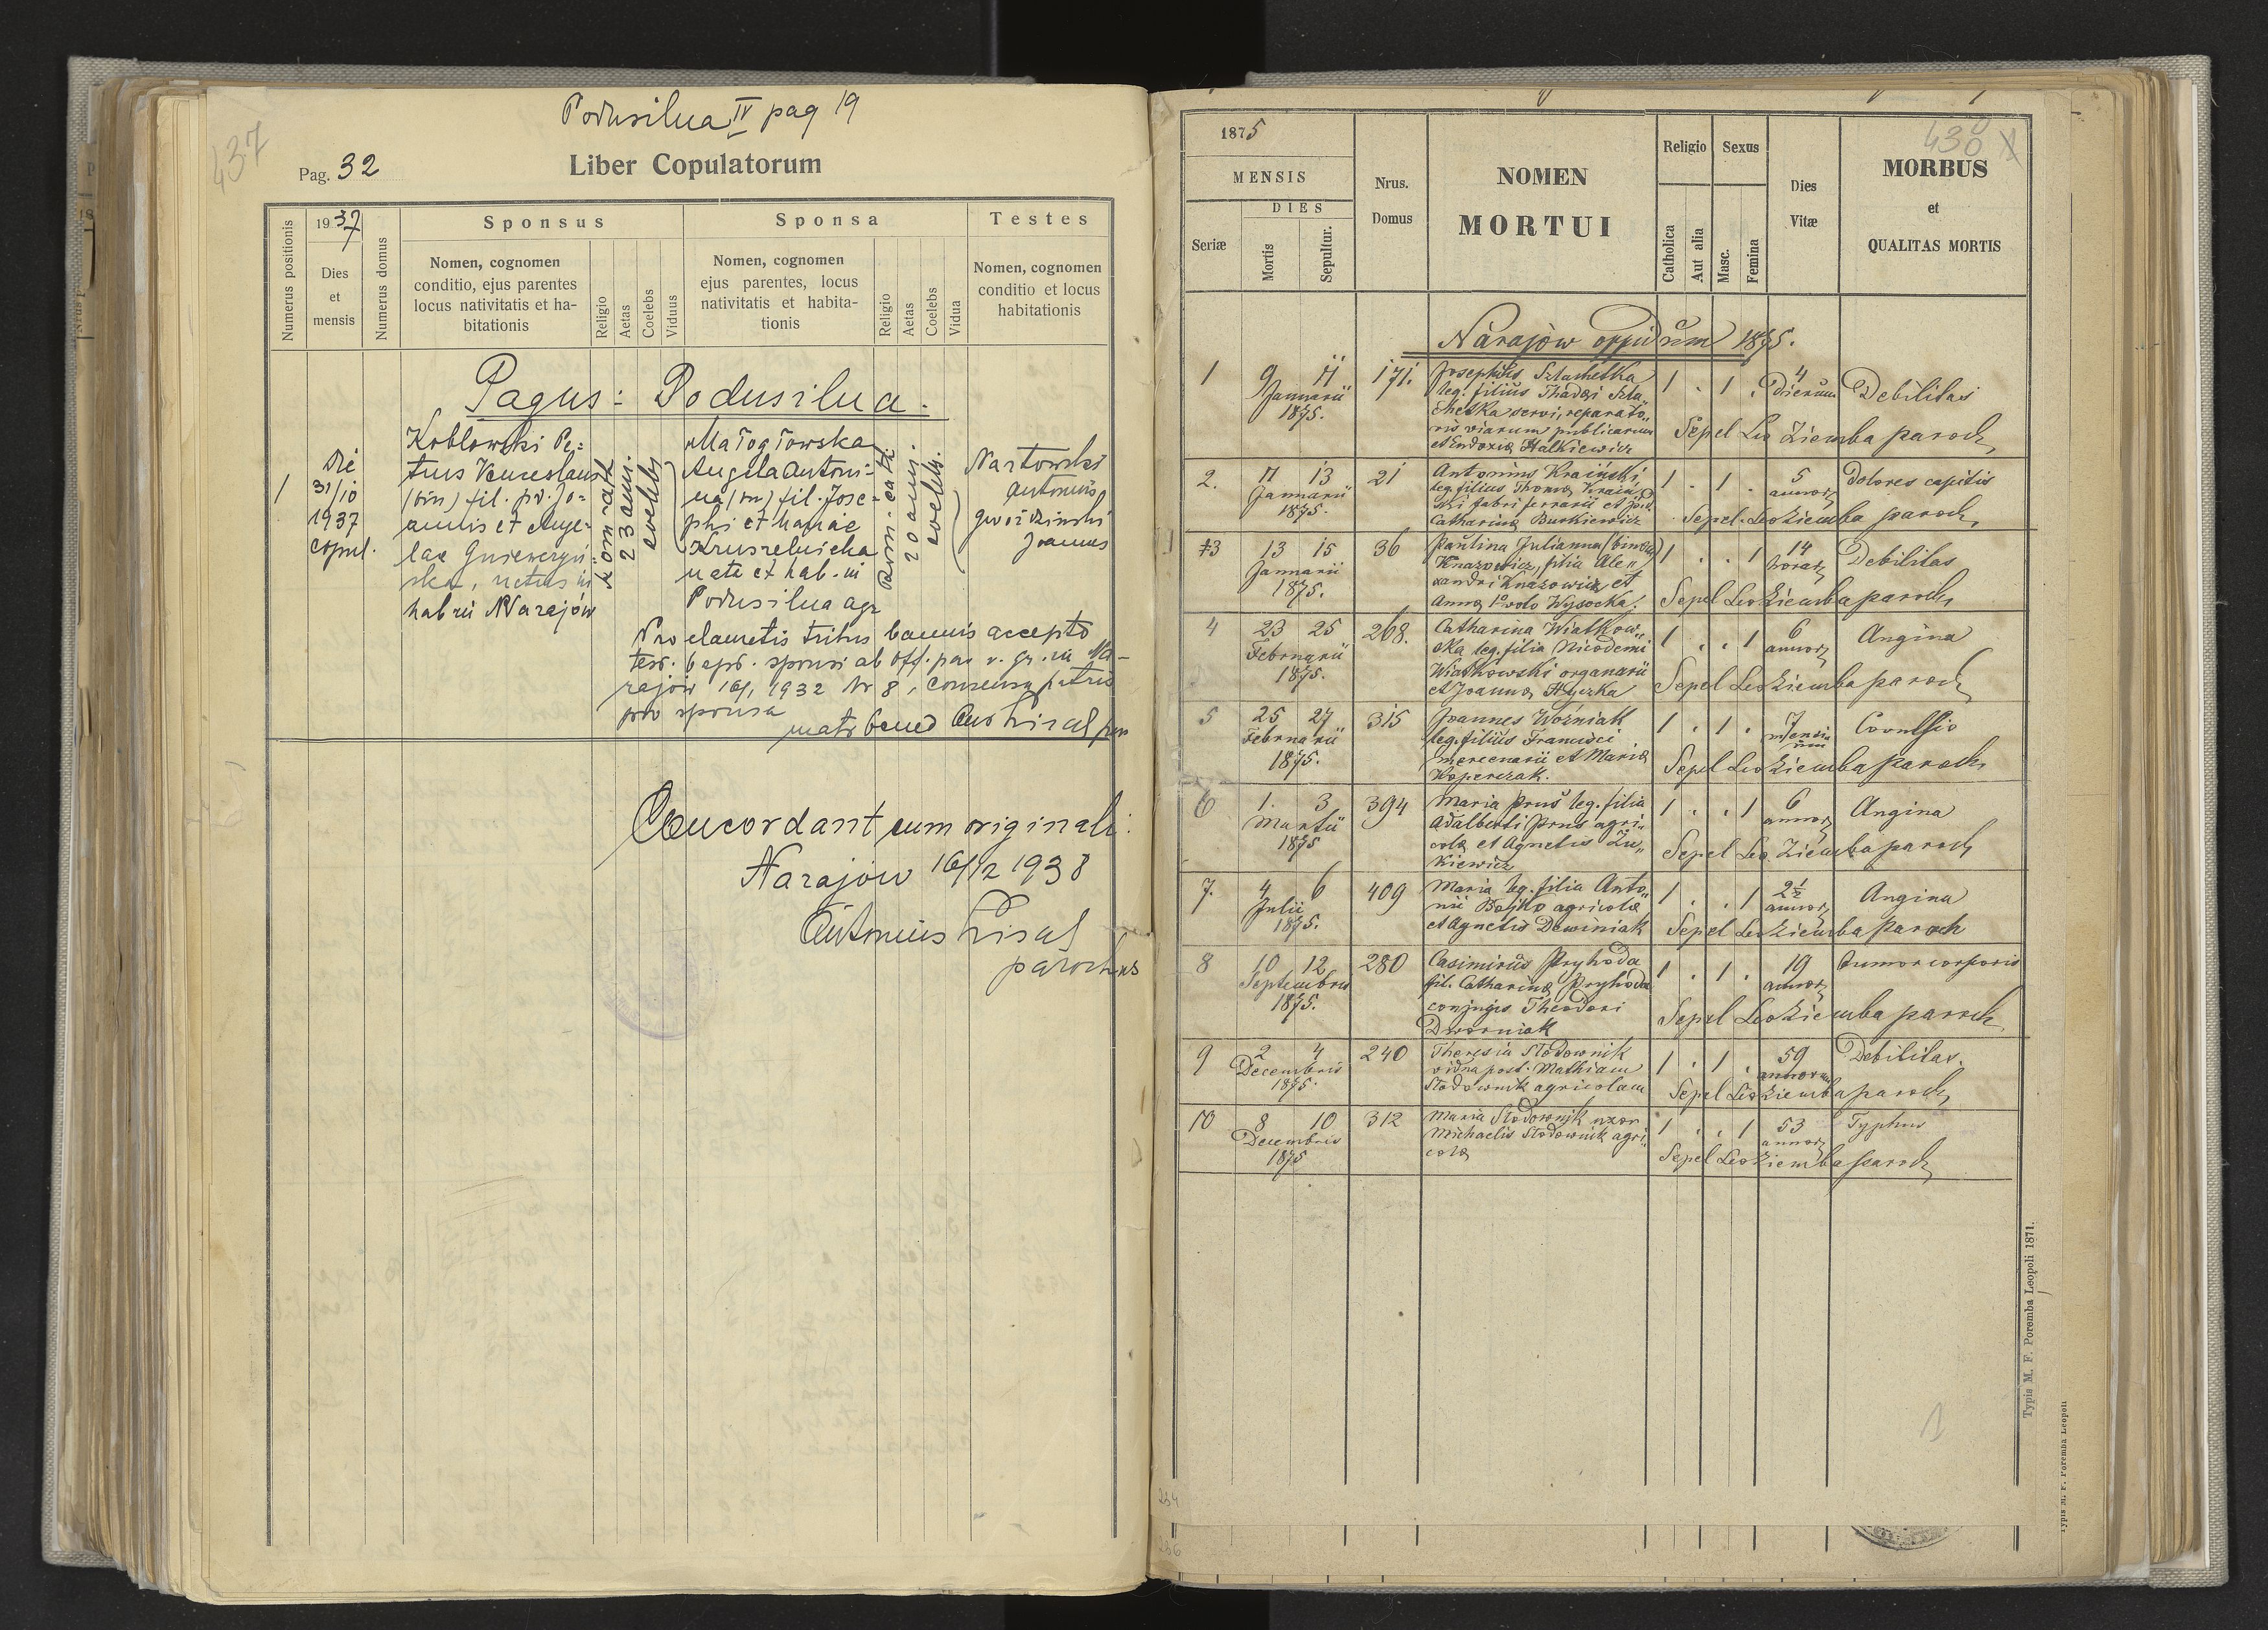 Podusilna IV pag 19
437
Pag. 32
Liber Copulatorum
Numerus positionis
1937
Dies
et
mensis
Numerus domus
Sponsus
Nomen, cognomen
conditio, ejus parentes
locus nativitatis et ha-
bitationis
Religio
Aetas
Coelebs
Viduus
Sponsa
Nomen, cognomen
ejus parentes, locus
nativitatis et habita-
tionis
Religio
Aetas
Coelebs
Vidua
Testes
Nomen, cognomen
conditio et locus
habitationis
Pagus: Podusilna.
1
Die
31/10
1937
copul.
Koblowski Pe-
trus Venceslaus
(bin) fil. pr. Jo-
annis et Ange-
lae
natus in
hab in Narajów
Rom-cath
23 ann.
coelebs
Małogłowska
Angela Antoni-
na (bin) fil. Jose-
phi et Mariae
Kruszelnicka
nata et hab. in
Podusilna agr
Rom-cath
20 ann.
coelebs.
Nartowski
Antonius
Gwoździnski
Joannes
Proclametis tribus bannis accepto
test. bapt. sponsi ab off. par r. gr. in Na-
rajów 16/1 1932 Nr 8, consensu patris
pro sponsa
matr bened Ant Lisal par
Concordant cum originali:
Narajów 16/2 1938
Antonius Lisal
parochus
1875
MENSIS
DIES
Seriæ
Mortis
Sepultur.
Nrus.
Domus
NOMEN
MORTUI
Religio
Catholica
Aut alia
Sexus
Masc.
Femina
Dies
Vitæ
438
MORBUS
et
QUALITAS MORTIS
Narajow oppidum 1875.
1
9 11
Januarii
1875.
171.
Josephus Sztachetka
leg. filius Thadei Szta-
chetka servi, reparato-
ris viarum publicarum
et Eudoxiæ Halkiewicz
1 . 1 .
4
dierum
Debilitas
Sepel Leo Ziemba paroch
2.
11 13
Januarii
1875.
21
Antonius Kraiński,
leg. filius Thomæ Kraiń-
ski fabri ferrarii et
Catharinæ Burkiewicz
1 . 1 .
5
annor
Dolores capitis
Sepel. Leo Ziemba paroch
3
13 15
Januarii
1875.
36
Paulina Julianna (bin
Knazowicz, filia Ale-
xandri Knazowicz et
Anna 1o voto Wysocka.
1 . . 1
14
horar
Debilitas
Sepel Leo Ziemba paroch
4
23 25
Februarii
1875.
268.
Catharina Wiatkow-
ska leg. filia Nicodemi
Wiatkowski organarii
et Joannæ Hyczka
1 . . 1
6
annor
Angina
Sepel Leo Ziemba paroch
5
25 27
Februarii
1875.
315
Joannes Woźniak
leg. filius Francisci
mercenarii et Mariæ
Koperczak.
1 . 1 .
7
mensi-
um
Sepel Leo Ziemba paroch
6
1. 3
Martii
1875
394
Maria Prus leg. filia
Adalberti Prus agri-
colæ et Agnetis Żu-
kiewicz
1 . . 1
6
annor
Angina
Sepel Leo Ziemba paroch
7.
4 6
Julii
1875.
409
Maria leg. filia Anto-
nii Bojko agricolæ
et Agnetis Dewiniak
1 . . 1
2½
annor
Angina
Sepel Leo Ziemba paroch
8
10 12
Septembris
1875.
280
Casimirus Pryhoda
fil. Catharinæ Pryhoda
conjugis Theodori
Dworniak
1 . 1 .
19
annor
tumor corporis
Sepel Leo Ziemba paroch
9
2 4
Decembris
1875.
240
Theresia Stodownik
vidua post. Mathiam
Stodownik agricolam
1 . 1 .
59
annorum
Debilitas.
Sepel Leo Ziemba paroch
10
8 10
Decembris
1875
312
Maria Stodownik uxor
Michaelis Stodownik agri-
colæ
1 . . 1
53
annor
Typhus
Sepel Leo Ziemba paroch
Typis M. F. Poremba Leopoli 1871.
Typis M. F. Poremba Leopoli
1
234
236